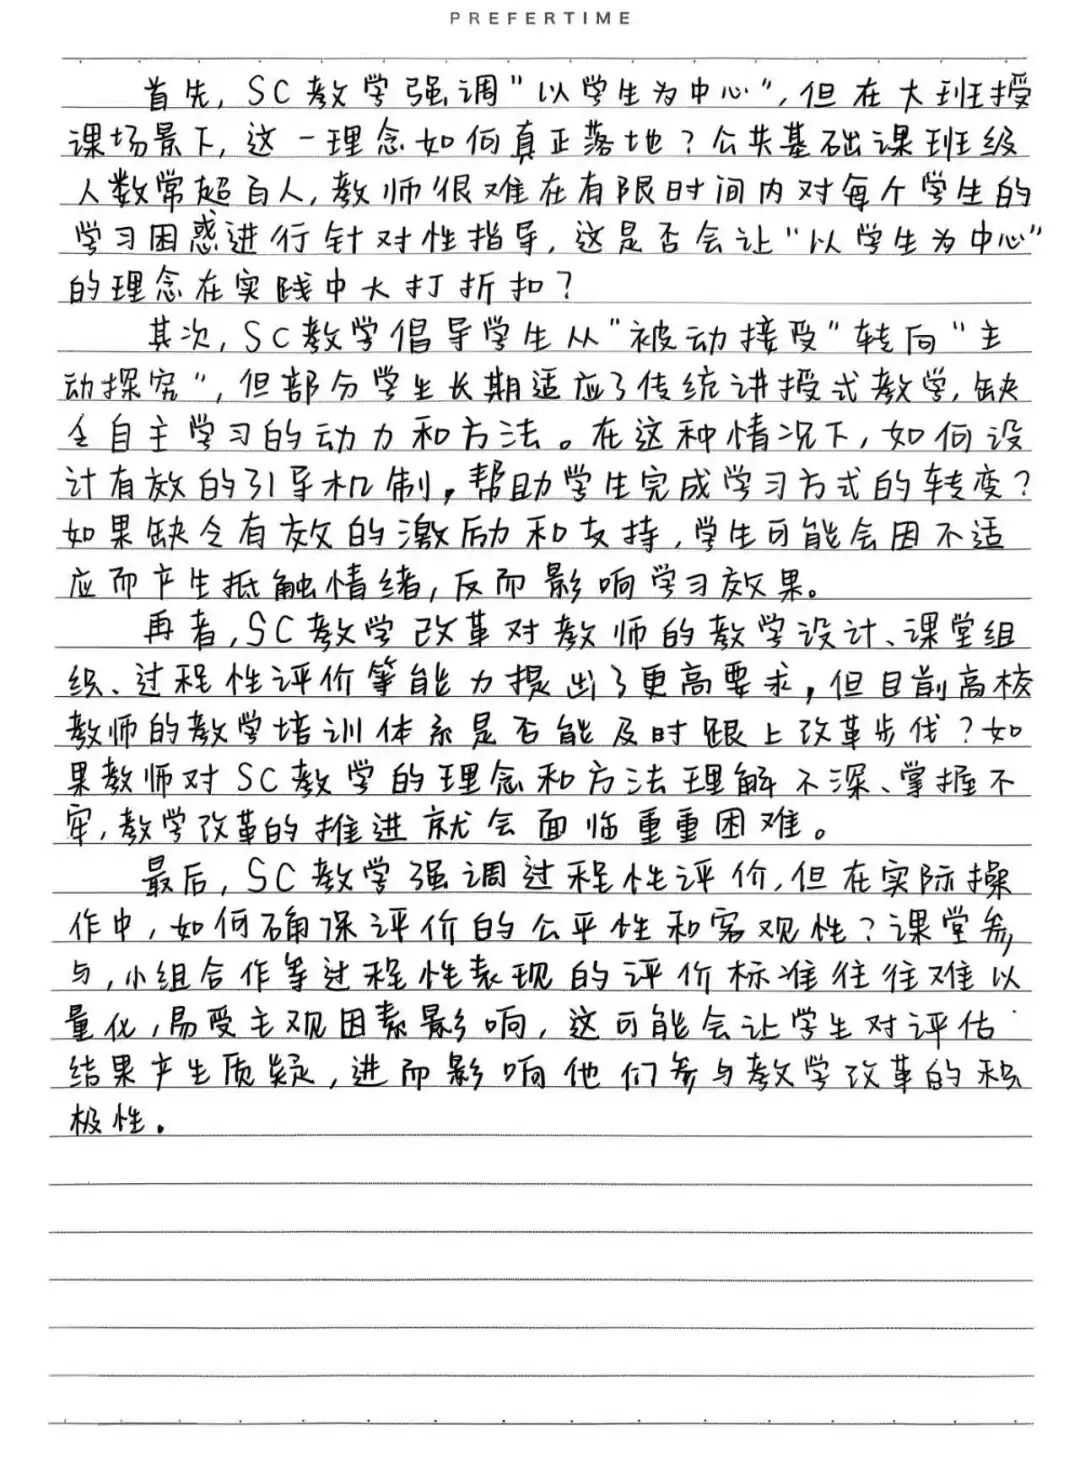 PREFERTIME
首先，SC教学强调"以学生为中心"，但在大班授
课场景下，这一理念如何真正落地？公共基础课班级
人数常超百人，教师很难在有限时间内对每个学生的
学习困惑进行针对性指导，这是否会让"以学生为中心"
的理念在实践中大打折扣？
其次，SC教学倡导学生从"被动接受"转向"主
动探究"，但部分学生长期适应了传统讲授式教学，缺
乏自主学习的动力和方法。在这种情况下，如何设
计有效的引导机制，帮助学生完成学习方式的转变？
如果缺乏有效的激励和支持，学生可能会因不适
应而产生抵触情绪，反而影响学习效果。
再者，SC教学改革对教师的教学设计、课堂组
织、过程性评价等能力提出了更高要求，但目前高校
教师的教学培训体系是否能及时跟上改革步伐？如
果教师对SC教学的理念和方法理解不深、掌握不
牢，教学改革的推进就会面临重重困难。
最后，SC教学强调过程性评价，但在实际操
作中，如何确保评价的公平性和客观性？课堂参
与，小组合作等过程性表现的评价标准往往难以
量化，易受主观因素影响，这可能会让学生对评估
结果产生质疑，进而影响他们参与教学改革的积
极性。